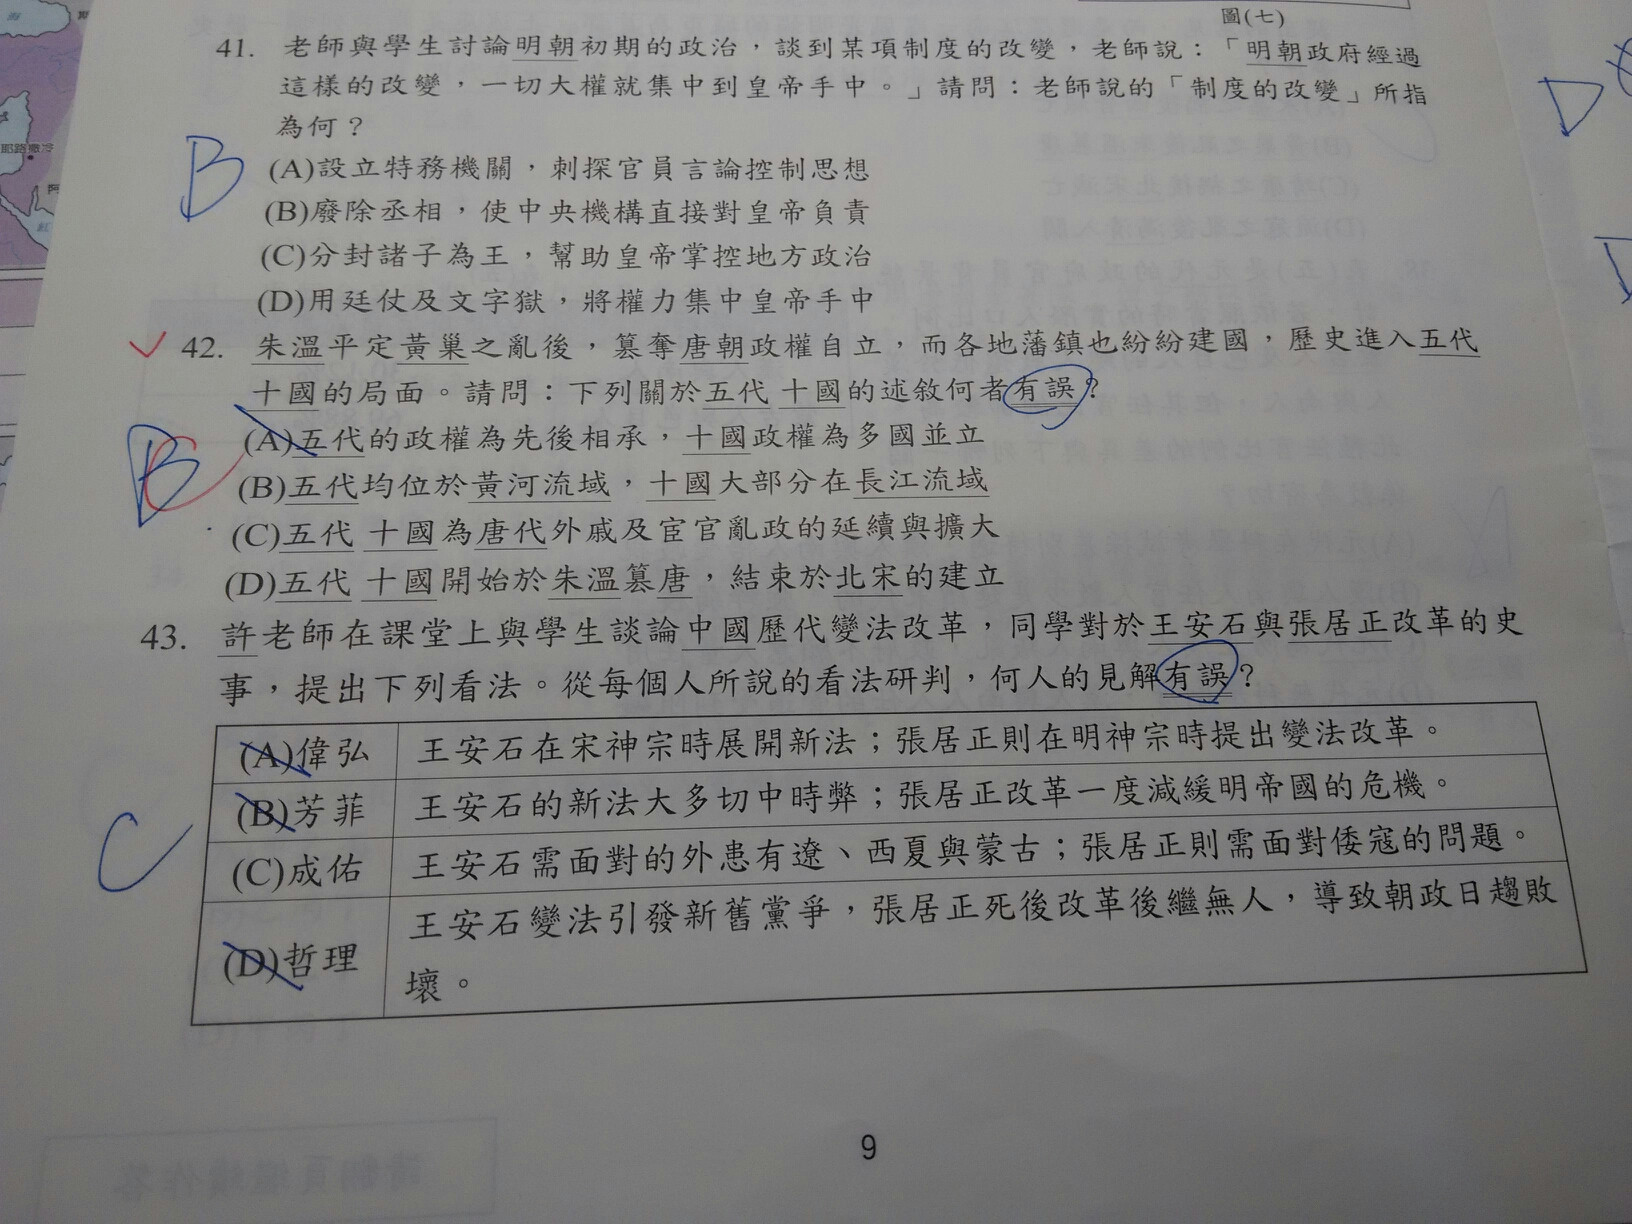 圖(七)
41. 老師與學生討論明朝初期的政治，談到某項制度的改變，老師說：「明朝政府經過
這樣的改變，一切大權就集中到皇帝手中。」請問：老師說的「制度的改變」所指
為何？
B
(A)設立特務機關，刺探官員言論控制思想
(B)廢除丞相，使中央機構直接對皇帝負責
(C)分封諸子為王，幫助皇帝掌控地方政治
(D)用廷仗及文字獄，將權力集中皇帝手中
42. 朱溫平定黃巢之亂後，篡奪唐朝政權自立，而各地藩鎮也紛紛建國，歷史進入五代
十國的局面。請問：下列關於五代 十國的述敘何者有誤？
B C
(A)五代的政權為先後相承，十國政權為多國並立
(B)五代均位於黃河流域，十國大部分在長江流域
(C)五代 十國為唐代外戚及宦官亂政的延續與擴大
(D)五代 十國開始於朱溫篡唐，結束於北宋的建立
43. 許老師在課堂上與學生談論中國歷代變法改革，同學對於王安石與張居正改革的史
事，提出下列看法。從每個人所說的看法研判，何人的見解有誤？
C
(A)偉弘 王安石在宋神宗時展開新法；張居正則在明神宗時提出變法改革。
(B)芳菲 王安石的新法大多切中時弊；張居正改革一度減緩明帝國的危機。
(C)成佑 王安石需面對的外患有遼、西夏與蒙古；張居正則需面對倭寇的問題。
(D)哲理 王安石變法引發新舊黨爭，張居正死後改革後繼無人，導致朝政日趨敗
壞。
9
D
耶路撒冷
海
紅